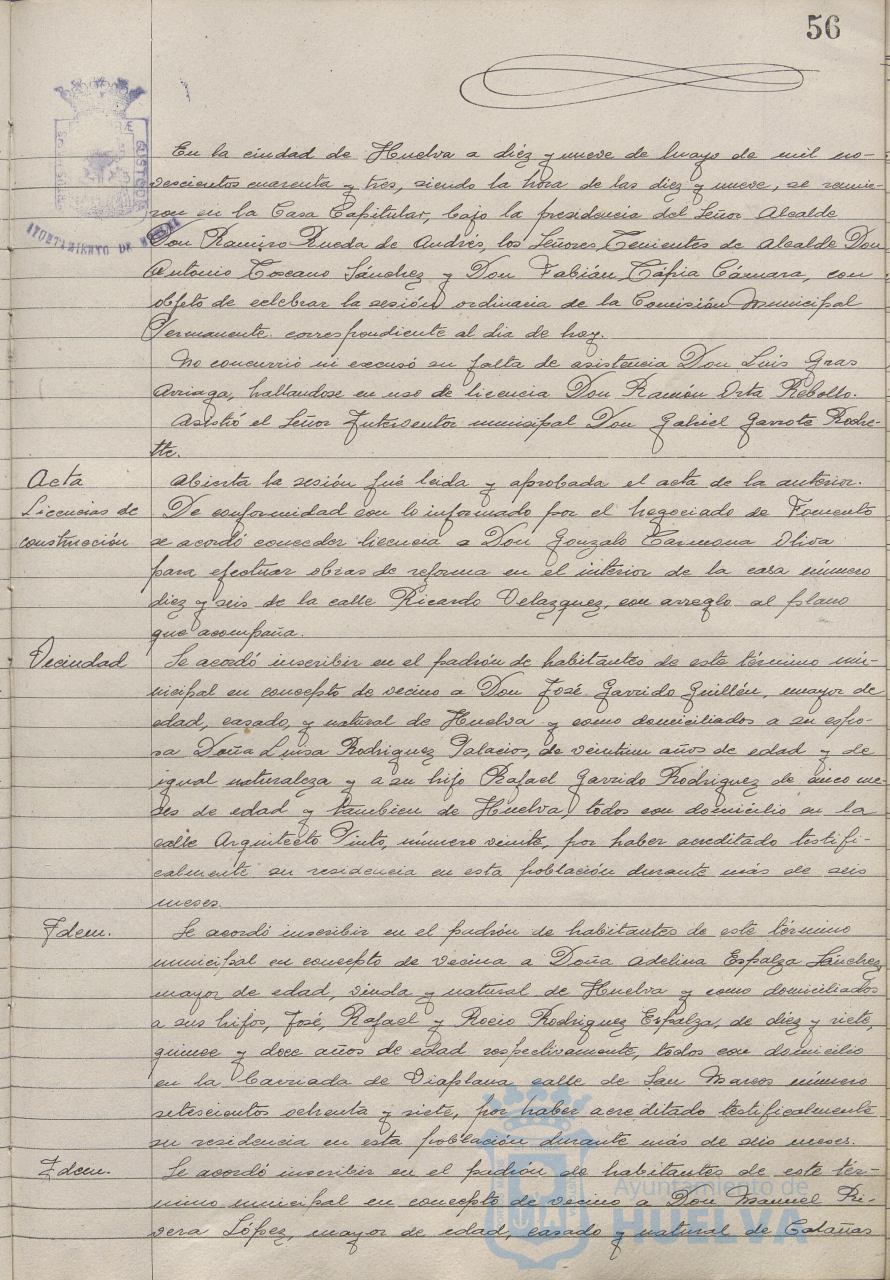 56
AYUNTAMIENTO DE HUELVA
En la ciudad de Huelva a diez y nueve de Mayo de mil no-
vescientos cuarenta y tres, siendo la hora de las diez y nueve, se reunie-
ron en la Casa Capitular, bajo la presidencia del Señor Alcalde
Don Ramiro Rueda de Andrés, los Señores Tenientes de Alcalde Don
Antonio Toscano Sánchez y Don Fabián Tápia Cámara, con
objeto de celebrar la sesión ordinaria de la Comisión Municipal
Permanente correspondiente al dia de hoy.
No concurrió ni excusó su falta de asistencia Don Luis Gras
Arriaga, hallandose en uso de licencia Don Ramón Orta Rebollo.
Asistió el Señor Interventor municipal Don Gabriel Garrote Rodre-
tte.
Acta
Abierta la sesión fué leida y aprobada el acta de la anterior.
Licencias de
construcción
De conformidad con lo informado por el Negociado de Fomento
se acordó conceder licencia a Don Gonzalo Carmona Oliva
para efectuar obras de reforma en el interior de la casa número
diez y seis de la calle Ricardo Velazquez, con arreglo al plano
que acompaña.
Vecindad
Se acordó inscribir en el padrón de habitantes de este término mú-
nicipal en concepto de vecino a Don José Garrido Guillén, mayor de
edad, casado, y natural de Huelva y como domiciliados a su espo-
sa Doña Luisa Rodriguez Palacios, de veintiun años de edad y de
igual naturaleza y a su hijo Rafael Garrido Rodriguez de cinco me-
ses de edad y tambien de Huelva, todos con domicilio en la
calle Arquitecto Pinto, número veinte, por haber acreditado testifi-
calmente su residencia en esta población durante más de seis
meses.
Idem.
Se acordó inscribir en el padrón de habitantes de este término
municipal en concepto de vecina a Doña Adelina Espalza Sánchez
mayor de edad, viuda y natural de Huelva y como domiciliados
a sus hijos, José, Rafael y Rocio Rodriguez Espalza, de diez y siete,
quince y doce años de edad respectivamente, todos con domicilio
en la barriada de Viaplana calle de San Marcos número
setescientos ochenta y siete, por haber acreditado testificalmente
su residencia en esta población durante más de seis meses.
Idem.
Se acordó inscribir en el padrón de habitantes de este tér-
mino municipal en concepto de vecino a Don Manuel Ri-
vera López, mayor de edad, casado y natural de Calañas
Ayuntamiento de
HUELVA